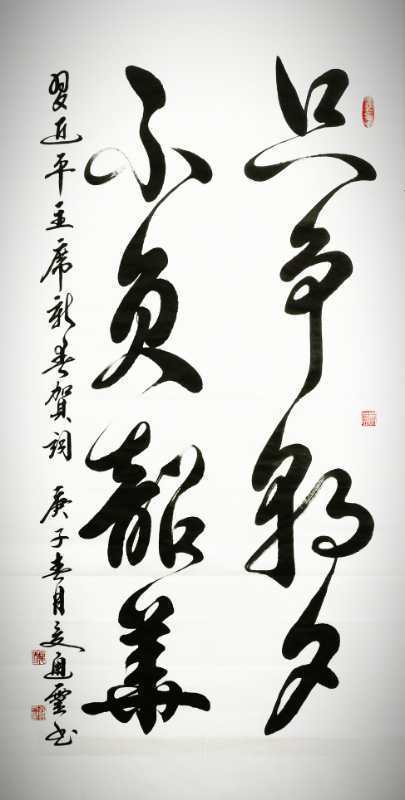 只争朝夕
不负韶华
习近平主席新春贺词 庚子春月文通灵书